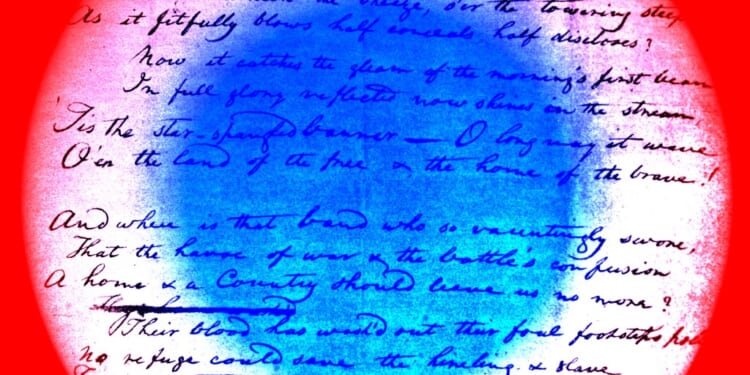 the breeze, o'er the towering steep
As it fitfully blows half conceals half discloses?
Now it catches the gleam of the morning's first beam
In full glory reflected now shines in the stream
'Tis the star-spangled banner — O long may it wave
O'er the land of the free & the home of the brave!
And where is that band who so vauntingly swore,
That the havoc of war & the battle's confusion
A home & a Country should leave us no more?
Their blood has wash'd out their foul footsteps pol
No refuge could save the hireling & slave